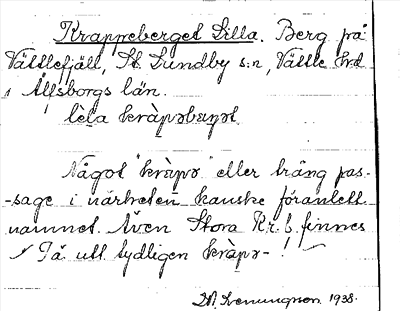 Krappeberget Lilla. Berg på
Vättlefjäll, St. Lundby s:n, Vättle hrd
i Älfsborgs län.
lìla kràpəbærjət
Något "kràpə" eller trång pas-
-sage i närheten kanske föranlett
namnet. Även Stora Kr. b. finnes
På utt tydligen kràpə-!
1938.